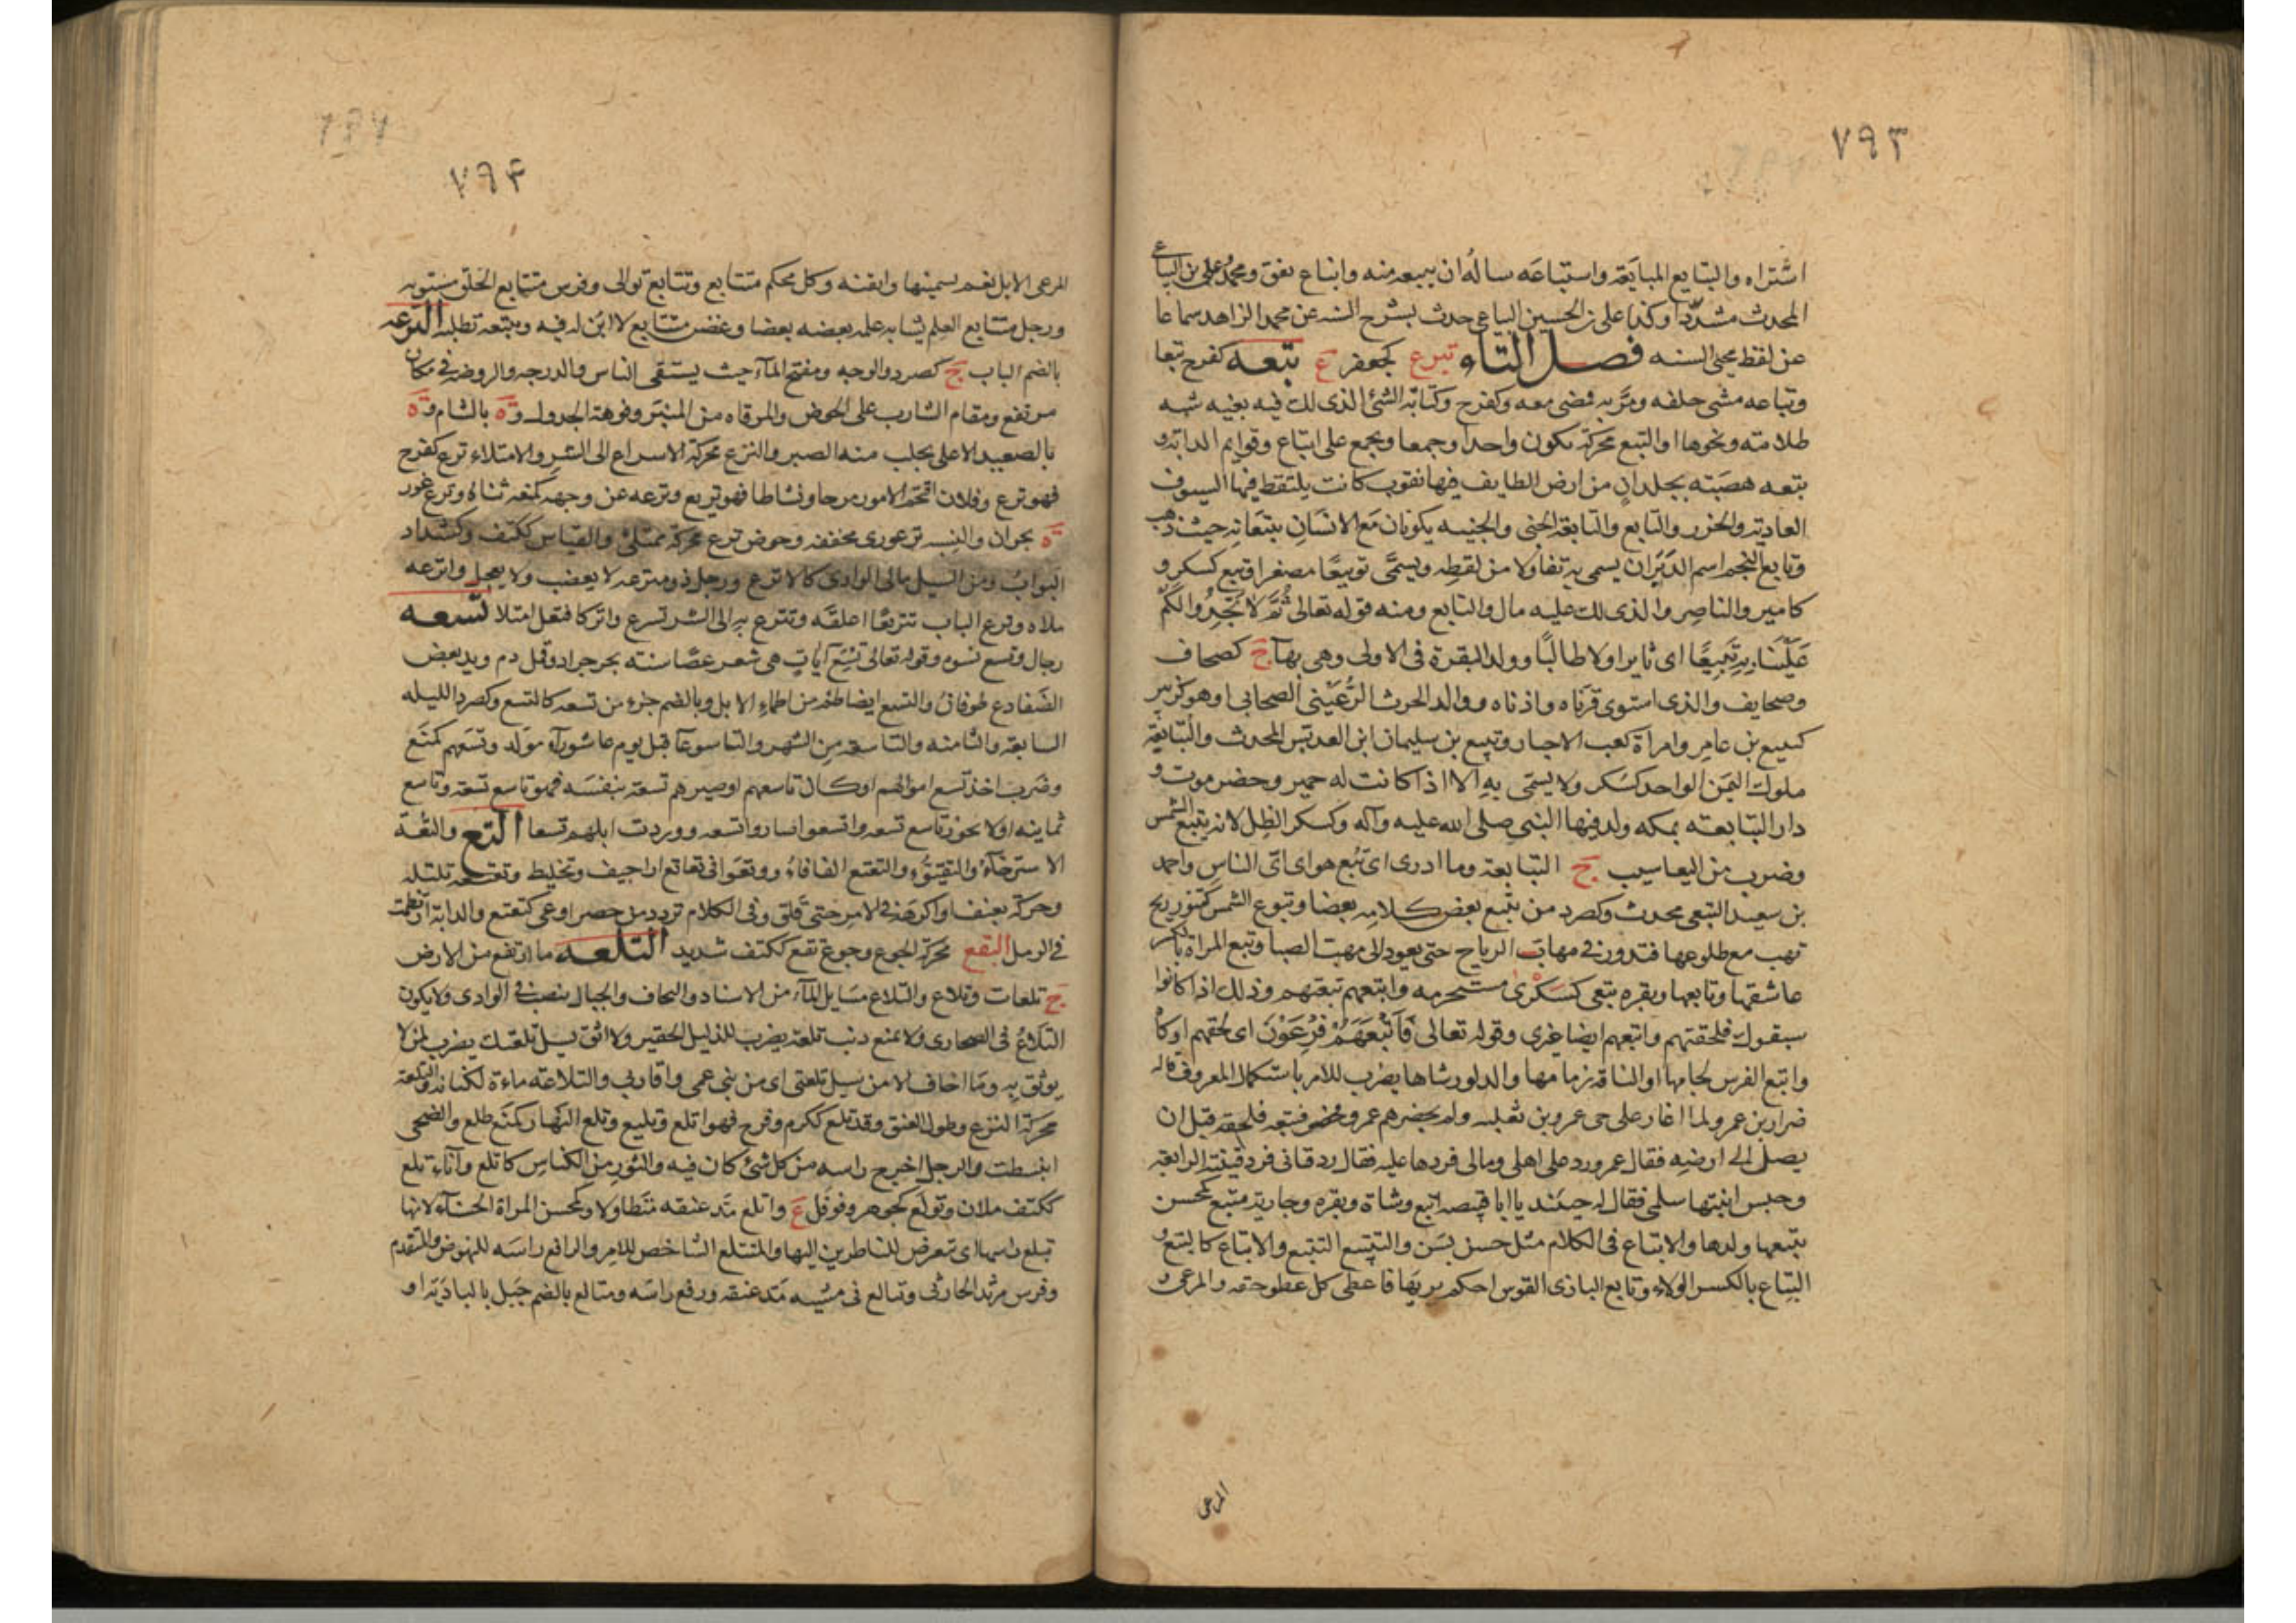 ٧٩٣
اشتراه والتبايع المبايعة واستباعه ساله ان يبيعه منه وانباع نفق ومحمد علي بن البياعي
المحدث مشددا وكذا علي بن الحسين البياعي حدث بشرح السنه عن محمد الزاهد سماعا
عن لفظ محيي السنه فصل التاء تبرع كجعفر ع تبعه كفرح تبعا
وتباعه مشى خلفه ومر به فمضى معه وكفرح وكتابة الشئ الذى لك فيه بغيه شبه
ظلامته ونحوها والتبع محركة يكون واحدا وجمعا ويجمع على اتباع وقوايم الدابة و
بتعه هضبته بجلدان من ارض الطايف فيها نقوب كانت يلتقط فيها السيوف
العادية والخزر والتابع والتابعة الجنى والجنيه يكونان مع الانسان يتبعانه حيث ذهب
وتابع النجم اسم الدبران يسمى به تفاولا من لفظه ويسمى تويبعا مصغرا وتبع كسكر و
كامير والناصر والذى لك عليه مال والتابع ومنه قوله تعالى ثم لا تجدوا لكم
علينا به تبيعا اى ثايرا ولا طالبا وولد البقرة فى الاولى وهى بهآ ج كصحاف
وصحايف والذى استوى قرناه واذناه ووالد الحرث الرعينى الصحابى او هو كزبير
كتبيع بن عامر وامراة كعب الاحبار وتبيع بن سليمان ابى العدبس المحدث والتبابعة
ملوك اليمن الواحد كسكر ولا يسمى به الا اذا كانت له حمير وحضرموت و
دار التبابعته بمكه ولد فيها النبى صلى الله عليه وآله وكسكر الظل لانه يتبع الشمس
وضرب من اليعاسيب ج التبابعة وما ادرى اى تبع هو اى اى الناس واحمد
بن سعيد التبعى محدث وكصرد من يتبع بعض كلامه بعضا وتبوع الشمس كتنور ريح
تهب مع طلوعها فتدور فى مهاب الرياح حتى يعود الى مهب الصبا وتبع المراة بالكسر
عاشقها وتابعها وبقره تبعى كسكرى مستحرمه واتبعهم تبعتهم وذلك اذا كانوا
سبقوك فلحقتهم واتبعهم ايضا غيرى وقوله تعالى فاتبعهم فرعون اى لحقهم او كا
واتبع الفرس لجامها او الناقة زمامها والدلو رشاها يضرب للامر باستكمال المعروف قاله
ضرار بن عمرو لما اغار على حى عمرو بن ثعلبه ولم يحضرهم عمرو فحضر فتبعه فلحقه قبل ان
يصل الى ارضه فقال عمرو رد على اهلى ومالى فردها عليه فقال رد قيانى فرد قينته الرابعة
وحبس ابنتها سلمى فقال له حينئذ يا ابا قبيصه اتبع وشاة وبقره وجارية متبع كمحسن
يتبعها ولدها والاتباع فى الكلام مثل حسن بسن والتتبيع التتبع والاتباع كالتبع و
التباع بالكسر الولاء وتابع البارى القوس احكم بريها فاعطى كل عضو حقه والمرعى
المرعى
٧٩٤
المرعى الابل انعم تسمينها واتقنه وكل محكم متتابع وتتابع توالى وفرس متتابع الخلق مستويه
ورجل متتابع العلم يشابه علمه بعضه بعضا وغصن متتابع لا ابن له فيه وتتبعه تطلبه الترعه
بالضم الباب ج كصرد والوجه ومفتح المآء حيث يستقى الناس والدرجه والروضه فى مكان
مرتفع ومقام الشارب على الحوض والمرقاه من المنبر وفوهة الجدول وة بالشام وة
بالصعيد الاعلى يجلب منه الصبر والترع محركة الاسراع الى الشر والامتلاء ترع كفرح
فهو ترع وفلان اقتحم الامور مرحا ونشاطا فهو تريع وترعه عن وجهه كمنعه ثناه وترع عوز
ة بحران والنسبه ترعوزى مخففه وحوض ترع محركة ممتلئ والقياس ككتف وكشداد
البواب ومن السيل مالى الوادى كالاترع ورجل ذو مترعه لا يغضب ولا يعجل واترعه
ملاه وترع الباب تتريعا اغلقه وتترع به الى الشر تسرع واترع كافتعل امتلا تسعه
رجال وتسع نسوه وقوله تعالى تسع آيات هى شعر عصا سنته بحر جراد وقمل دم ويد بعض
الضفادع طوفان والتسع ايضا ظمؤ من اظماء الابل وبالضم جزء من تسعه كالتسع وكصرد الليله
السابعة والثامنه والتاسعة من الشهر والتاسوعآ قبل يوم عاشورآء مولد وتسعهم كمنع
وضرب اخذ تسع اموالهم او كان تاسعهم او صيرهم تسعة بنفسه فهو تاسع تسعة وتاسع
ثمانيه ولا يجوز تاسع تسعه واتسعوا صاروا تسعه ووردت ابلهم تسعا التع والتعة
الاسترخآء والتقيؤ والتعتع الفافاء ووقعوا فى تعاتع اراجيف وتخليط وتعتعه تلتله
وحركه بعنف او اكرهه فى الامر حتى قلق وفى الكلام تردد من حصر او عى كتعتع والدابة ارتطمت
فى الرمل التقع محركة الجوع وجوع تقع ككتف شديد التلعه ما ارتفع من الارض
ج تلعات وتلاع والتلاع مسايل المآء من الاسناد والنجاف والجبال ينصب فى الوادى ولا يكون
التلاع فى الصحارى ولا يمنع ذنب تلعة يضرب للذليل الحقير ولا اثق بسيل تلعتك يضرب لمن لا
يوثق به وما اخاف الا من سيل تلعتى اى من بنى عمى واقاربى والتلاعه ماءة لكنانه والتلعة
محركة التزع وطول العنق وقد تلع ككرم وفرح فهو اتلع وتليع وتلع النهار كمنع طلع والضحى
انبسطت والرجل اخرج راسه من كل شئ كان فيه والثور من الكناس كاتلع وآناء تلع
ككتف ملان وتولع كجوهر وفوفل ع واتلع مد عنقه متطاولا وكمحسن المراة الحسنآء لانها
تتلع راسها اى تتعرض للناظرين اليها والمتتلع الشاخص للامر والرافع راسه للنهوض والمتقدم
وفرس مزيد الحارثى وتتالع فى مشيه مد عنقه ورفع راسه ومتالع بالضم جبل بالبادية او